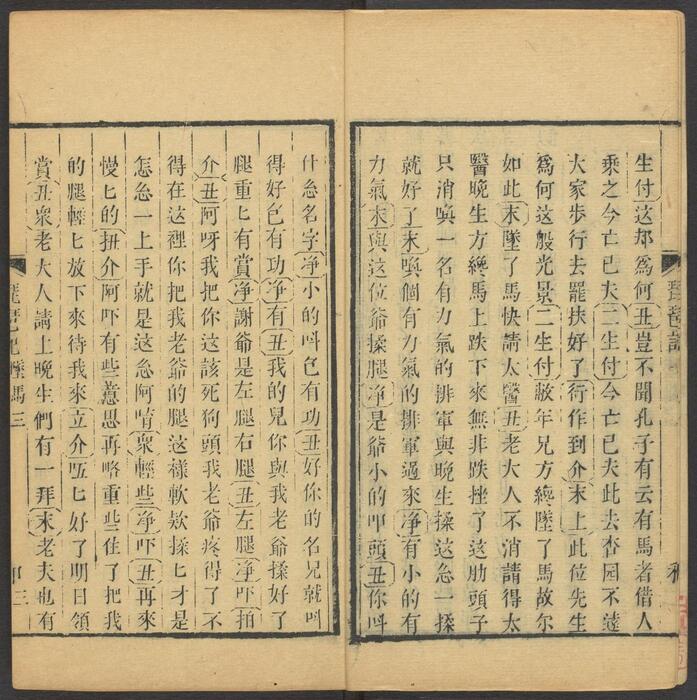 生付这却爲何丑豈不聞孔子有云有馬者借人
乘之今亡已夫二生付今亡已夫此去杏园不遠
大家步行去罷扶好了行作到介末上此位先生
爲何这般光景二生付敝年兄方纔墜了馬故尔
如此末墜了馬快請太醫丑老大人不消請得太
醫晚生方纔馬上跌下來無非跌挫了这肋頭子
只消喚一名有力氣的排軍與晚生揉这怠一揉
就好了末喚個有力氣的排軍過來净有小的有
力氣末與这位爺揉腿净是爺小的叩頭丑你呌
什怠名字净小的呌色有功丑好你的名兒就呌
得好色有功净有丑我的兒你與我老爺揉好了
腿重匕有賞净謝爺是左腿右腿丑左腿净吓拍
介丑阿呀我把你这該死狗頭我老爺疼得了不
得在这裡你把我老爺的腿这樣軟欵揉匕才是
怎怠一上手就是这怠阿唷衆輕些净吓丑再來
慢匕的扭介阿吓有些意思再略重些住了把我
的腿輕匕放下來待我來立介匕好了明日領
賞丑衆老大人請上晚生們有一拜末老夫也有
琵琶記墜馬三